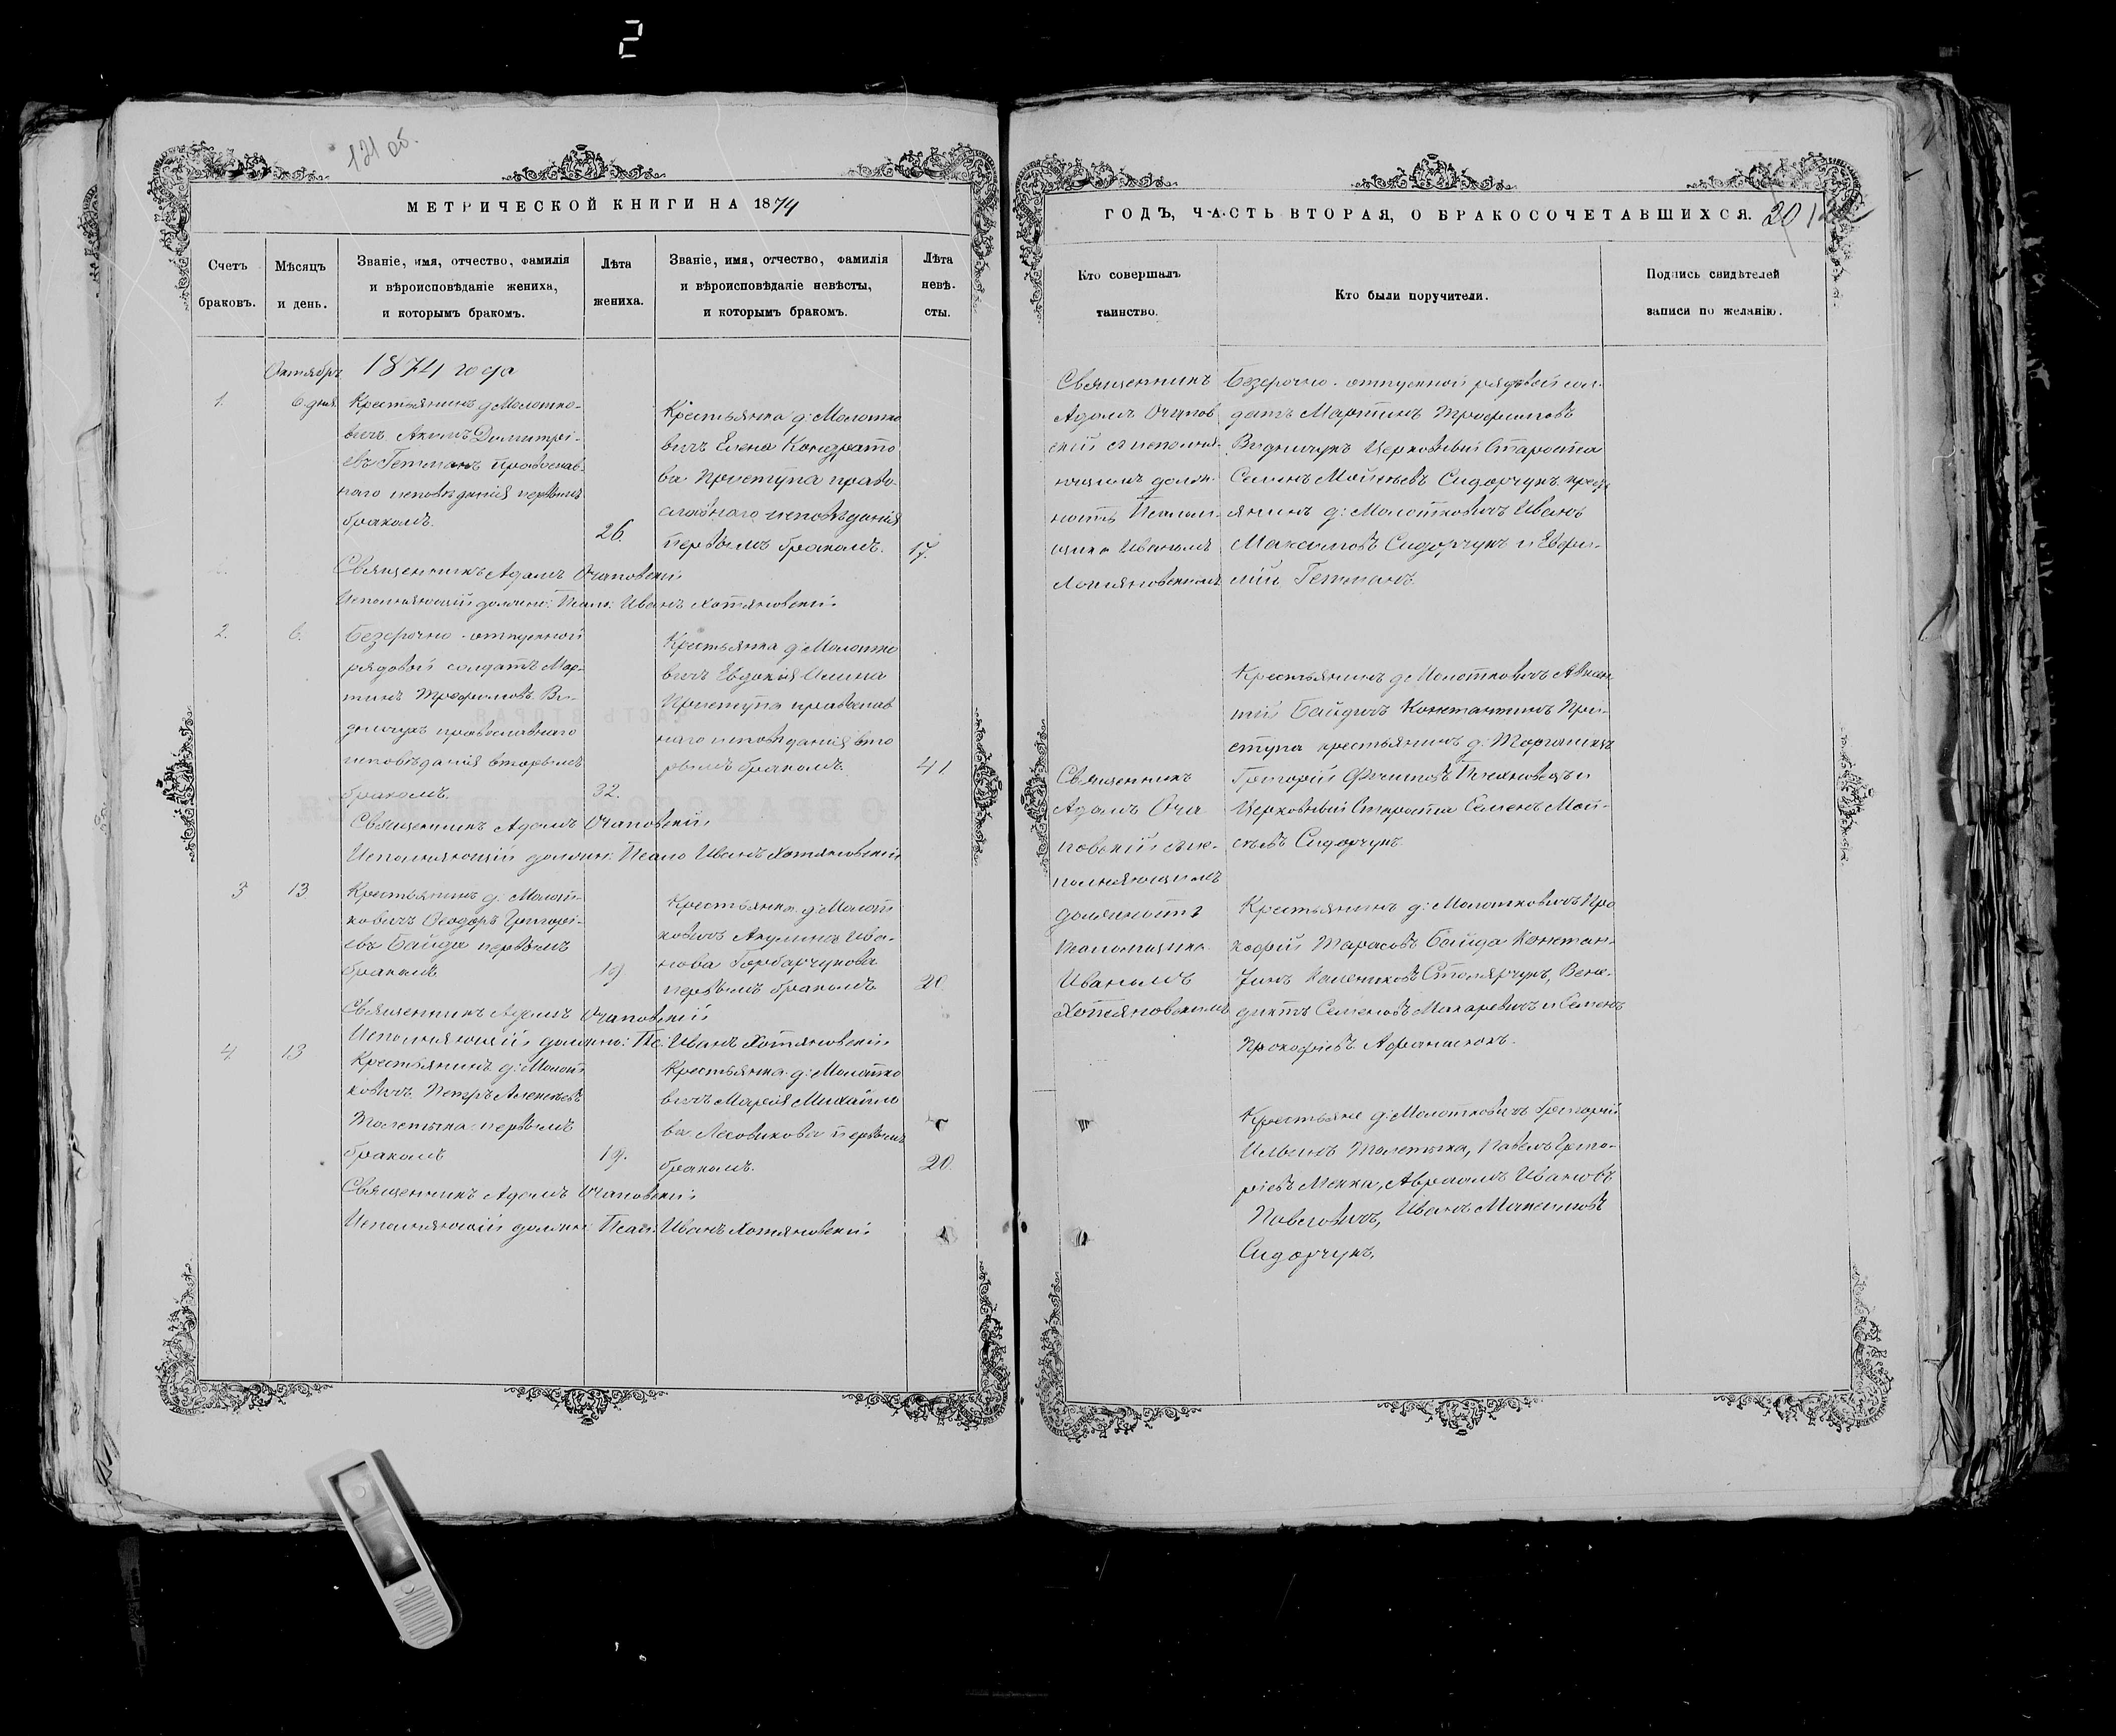 2
121 об.
МЕТРИЧЕСКОЙ КНИГИ НА 1874
Счетъ браковъ.
Мѣсяцъ и день.
Званіе, имя, отчество, фамилія
и вѣроисповѣданіе жениха,
и которымъ бракомъ.
Лѣта
жениха.
Званіе, имя, отчество, фамилія
и вѣроисповѣданіе невѣсты,
и которымъ бракомъ.
Лѣта
невѣ-
сты.
Октябрь 1874 года
1.
6. дня.
Крестьянинъ д Молотко-
вичъ Акимъ Димитрі-
евъ Гетманъ православ-
наго исповѣданія первымъ
бракомъ.
26.
Крестьянка д: Молотко
вичъ Елена Кондрато
ва Приступа право-
славнаго исповѣданія
первымъ бракомъ.
17.
Священникъ Адамъ Очаповскій
Исполняющій должно: Псал: Иванъ Хотяновскій
2.
6.
Безсрочно-отпускной
рядовой солдатъ Мар-
тинъ Трофимовъ Ви-
дничукъ православнаго
исповѣданія вторымъ
бракомъ.
32.
Крестьянка д: Молотко
вичъ Евдокія
Приступа православ
наго исповѣданія вто
рымъ бракомъ.
41
Священникъ Адамъ Очаповскій
Исполняющій должн: Псало Иванъ Хотяновскій
3
13
Крестьянинъ д. Молот-
ковичъ Ѳеодоръ Григорі-
евъ Байда первымъ
бракомъ
19
Крестьянка д: Молот
ковичъ Акулина Ива-
нова Горбарчукова
первымъ бракомъ
20
Священникъ Адамъ Очаповскій
Исполняющій должно: Пс: Иванъ Хотяновскій
4
13
Крестьянинъ д: Молот
ковичъ Петръ Алексѣевъ
Толстыка первымъ
бракомъ
19.
Крестьянка д: Молотко
вичъ Марія Михайло
ва Лесовикова первымъ
бракомъ.
20.
Священникъ Адамъ Очаповскій
Исполняющій должн: Псал: Иванъ Хотяновскій
ГОДЪ, ЧАСТЬ ВТОРАЯ, О БРАКОСОЧЕТАВШИХСЯ.
20
Кто совершалъ
таинство.
Кто были поручители.
Подпись свидѣтелей
записи по желанію.
Священникъ
Адамъ Очапов
скій съ исполня-
ющимъ долж-
ность Псалом-
щика Иваномъ
Хотяновскимъ
Безсрочно-отпускной рядовой сол-
датъ Мартинъ Трофимовъ
Видничукъ Церковный Староста
Семенъ Мойсѣевъ Сидорчукъ крест
янинъ д: Молотковичъ Иванъ
Максимовъ Сидорчукъ и Евфи-
мій Гетманъ.
Крестьянинъ д: Молотковичъ Авксен
тій Байдичъ Константинъ При-
ступа крестьянинъ д:
Григорій и
Церковный Староста Семенъ Мой-
сѣевъ Сидорчукъ
Священникъ
Адамъ Оча
повскій съ ис-
полняющимъ
должность
Псаломщика
Иваномъ
Хотяновскимъ
Крестьянинъ д: Молотковичъ Про
кофій Тарасовъ Байда Констан-
тинъ Столярчукъ, Вене-
диктъ Семеновъ Макаревичъ и Семенъ
Прокофіевъ Афанасюкъ.
Крестьяне д: Молотковичъ Григорій
Ильинъ Толстыка, Павелъ Григо-
ріевъ Мекка, Авраамъ Ивановъ
Павловичъ, Иванъ Максимовъ
Сидорчукъ,